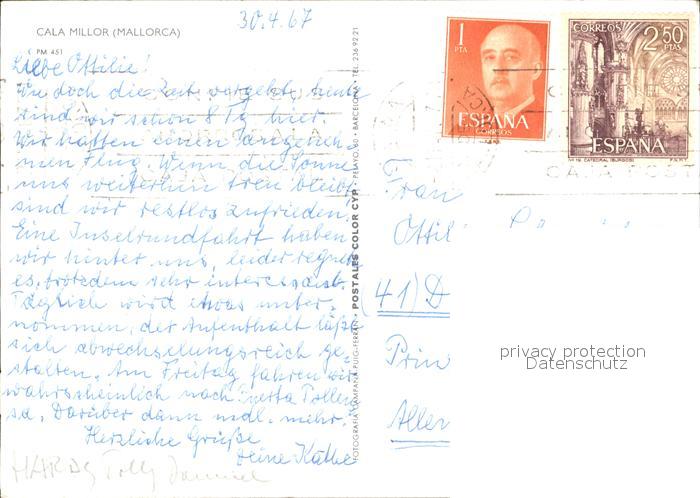 30.4.67
CALA MILLOR (MALLORCA)
C PM 451
Liebe Ottilie!
Wie doch die Zeit vergeht, heute
sind wir schon 8 Tg hier.
Wir hatten einen angeneh-
men Flug. Wenn die Sonne
uns weiterhin treu bleibt,
sind wir restlos zufrieden.
Eine Inselrundfahrt haben
wir hinter uns, leider regnete
es, trotzdem sehr interessant.
Täglich wird etwas unter-
nommen, der Aufenthalt läßt
sich abwechselungsreich ge-
stalten. Am Freitag fahren wir
wahrscheinlich nach Puerta Pollen-
sa. Darüber dann mdl. mehr.
Herzliche Grüße
Deine Käthe
FOTOGRAFIA CAMPAÑA-PUIG-FERRAN - POSTALES COLOR CYP. - PELAYO, 60 - BARCELONA - TEL. 236 92 21
1
PTA
ESPAÑA
CORREOS
CORREOS
2,50
PTAS
ESPAÑA
CATEDRAL (BURGOS)
F.N.M.T.
Frau
Ottil
(41) D
Prin
Aller
privacy protection
Datenschutz